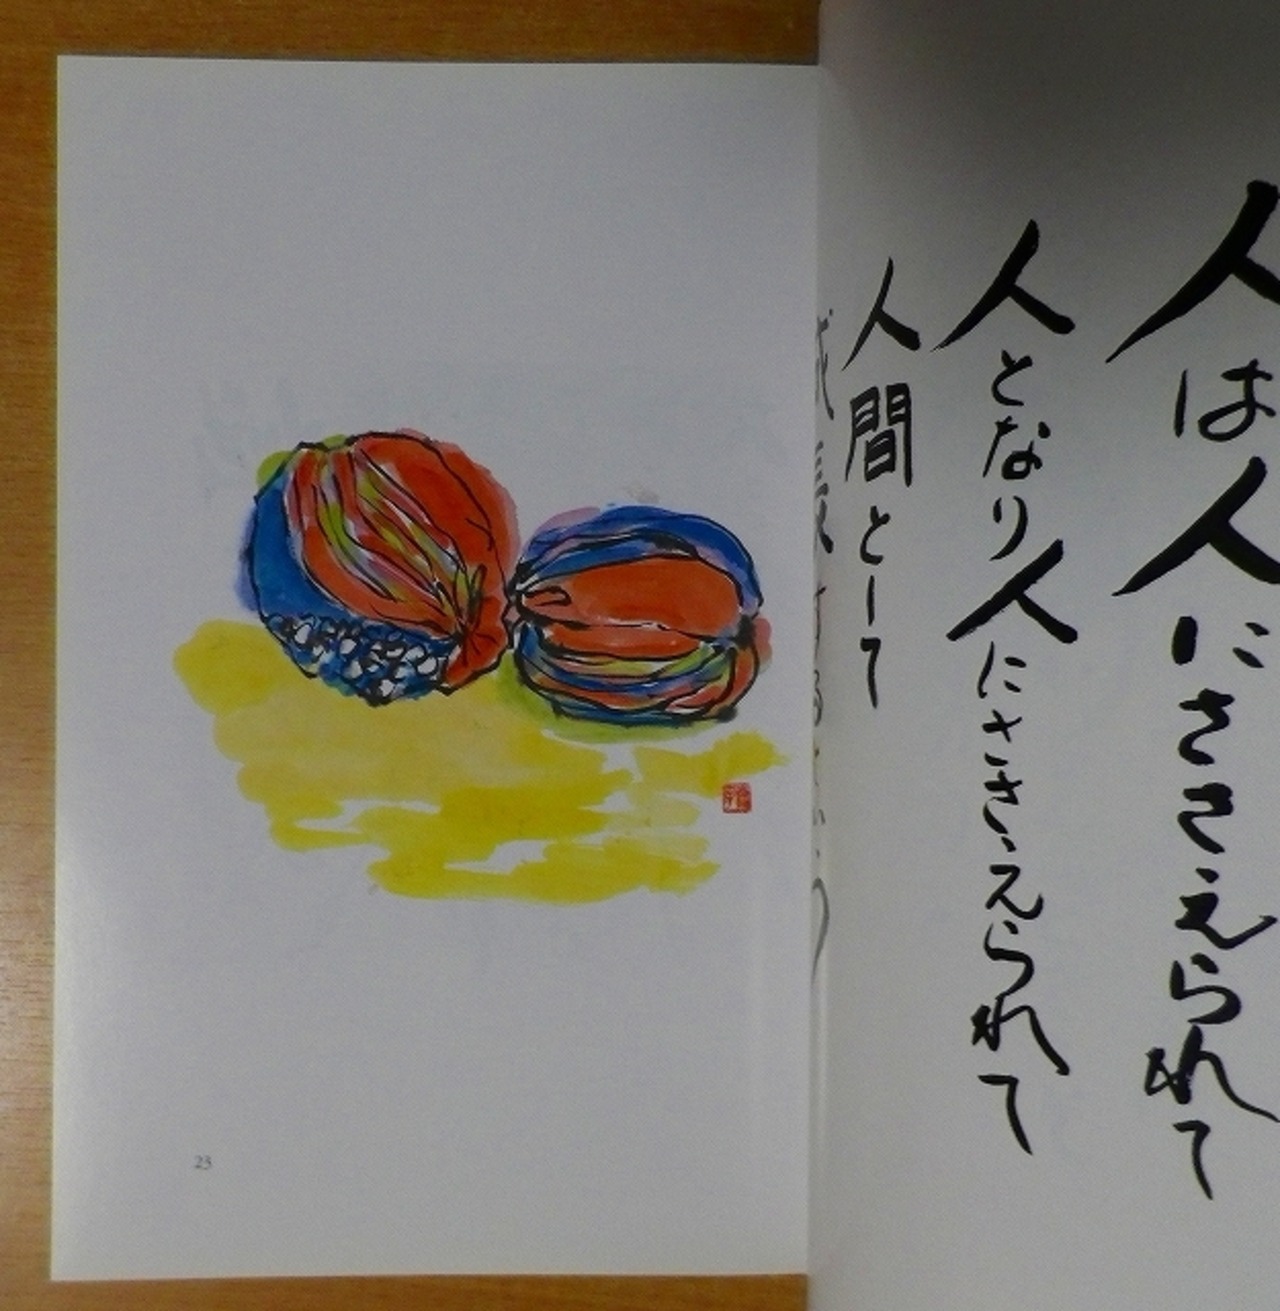 人は人にささえられて
人となり人にささえられて
人間として
成長するという
23